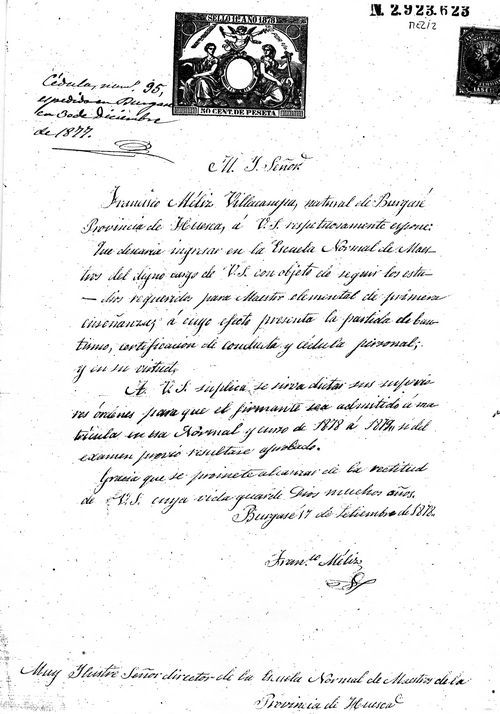 N. 2.923.623
MELIZ
SELLO 12º AÑO 1878
50 CENT. DE PESETA
Cédula, num.º 95,
espedida en Burgasé
en 30 de diciembre
de 1877.
M. Y. Señor
Francisco Méliz Villacampa, natural de Burgasé
Provincia de Huesca, á V.S. respetuosamente espone:
Que desearia ingresar en la Escuela Normal de Maes-
tros del digno cargo de V.S. con objeto de seguir los estu-
-dios requeridos para Maestro elemental de primera
enseñanza; á cuyo efecto presenta la partida de bau-
tismo, certificacion de conducta y cédula personal;
y en su virtud,
A V.S. suplica se sirva dictar sus superio-
res órdenes para que el firmante sea admitido á ma-
trícula en esa Normal y curso de 1878 á 1879, si del
examen previo resultare aprobado.
Gracia que se promete alcanzar de la rectitud
de V.S. cuya vida guarde Dios muchos años.
Burgasé 17 de Setiembre de 1878.
Fran.co Méliz
Muy Ilustre Señor director de la Escuela Normal de Maestros de la
Provincia de Huesca